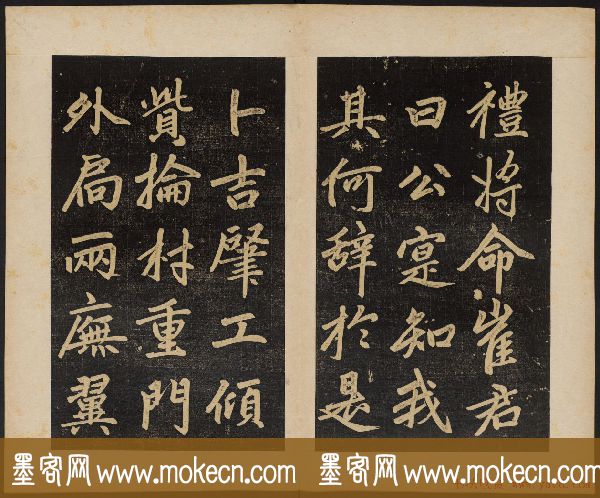 禮將命崔君
曰公寔知我
其何辭於是
卜吉肇工傾
貲掄材重門
外扃兩廡翼
墨客网www.mokecn.com 墨客网www.mokecn.com